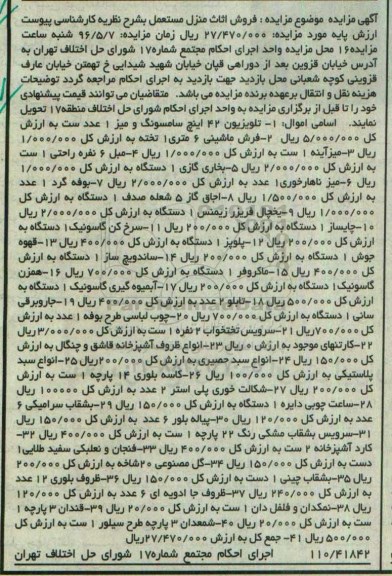 آگهی مزایده موضوع مزایده : فروش اثاث منزل مستعمل بشرح نظریه کارشناسی پیوست
ارزش پایه مورد مزایده: ۲۷/۴۷۰/۰۰۰ ریال زمان مزایده: ۹۶/۵/۷ شنبه ساعت
مزایده۱۶ محل مزایده واحد اجرای احکام مجتمع شماره۱۷ شورای حل اختلاف تهران به
آدرس خیابان قزوین بعد از دوراهی قپان خیابان شهید شیدایی خ تهمتن خیابان عارف
قزوینی کوچه شعبانی محل بازدید جهت بازدید به اجرای احکام مراجعه گردد توضیحات
هزینه نقل و انتقال برعهده برنده مزایده می باشد. متقاضیان می توانند قیمت پیشنهادی
خود را تا قبل از برگزاری مزایده به واحد اجرای احکام شورای حل اختلاف منطقه۱۷ تحویل
نمایند. اسامی اموال: ۱- تلویزیون ۴۲ اینچ سامسونگ و میز ۱ عدد ست به ارزش
کل ۵/۰۰۰/۰۰۰ ریال ۲-فرش ماشینی ۶ متری۱ تخته به ارزش کل ۱/۰۰۰/۰۰۰
ریال ۳-میزآینه ۱ ست به ارزش کل ۱/۰۰۰/۰۰۰ ریال ۴-مبل ۶ نفره راحتی ۱ ست
به ارزش کل ۲/۰۰۰/۰۰۰ ریال ۵-بخاری گازی ۱ دستگاه به ارزش کل ۱/۰۰۰/۰۰۰
ریال ۶-میز ناهارخوری۱ عدد به ارزش کل ۲/۰۰۰/۰۰۰ ریال ۷-بوفه گرد ۱ عدد
به ارزش کل ۱/۵۰۰/۰۰۰ ریال ۸-اجاق گاز ۵ شعله صدف ۱ دستگاه به ارزش کل
۱/۰۰۰/۰۰۰ ریال ۹-یخچال فریزر زیمنس ۱ دستگاه به ارزش کل ۲/۰۰۰/۰۰۰ ریال
۱۰-چایساز ۱ دستگاه به ارزش کل ۲۰۰/۰۰۰ ریال ۱۱-سرخ کن گاسونیک۱ دستگاه به
ارزش کل ۲۰۰/۰۰۰ ریال ۱۲-پلوپز ۱ دستگاه به ارزش کل ۴۰۰/۰۰۰ ریال ۱۳-قهوه
جوش ۱ دستگاه به ارزش کل ۲۰۰/۰۰۰ ریال ۱۴-ساندویچ ساز ۱ دستگاه به ارزش
کل ۴۰۰/۰۰۰ ریال ۱۵-ماکروفر ۱ دستگاه به ارزش کل ۷۰۰/۰۰۰ ریال ۱۶-همزن
گاسونیک۱ دستگاه به ارزش کل ۲۰۰/۰۰۰ ریال ۱۷-آبمیوه گیری گاسونیک ۱ دستگاه به
ارزش کل ۵۰۰/۰۰۰ ریال ۱۸-تابلو ۲ عدد به ارزش کل ۴۰۰/۰۰۰ ریال ۱۹-جاروبرقی
سانی ۱ دستگاه به ارزش کل ۷۰۰/۰۰۰ ریال ۲۰-چوب لباسی طرح بوفه ۱ عدد به ارزش
کل ۷۰۰/۰۰۰ریال ۲۱-سرویس تختخواب ۲ نفره ۱ ست به ارزش کل ۳/۰۰۰/۰۰۰ ریال
۲۲-کارتنهای موجود به ارزش ۰ ریال ۲۳-انواع ظروف آشپزخانه قاشق و چنگال به ارزش
کل ۱۵۰/۰۰۰ ریال ۲۴-انواع سبد حصیری به ارزش کل ۲۰۰/۰۰۰ریال ۲۵-انواع سبد
پلاستیکی به ارزش کل ۱۰۰/۰۰۰ ریال ۲۶-کاسه بلوری ۱۴ پارچه ۱ ست به ارزش
کل ۲۰۰/۰۰۰ ریال ۲۷-شکالت خوری پلی استر ۲ عدد به ارزش کل ۱۰۰۰۰۰ ریال
۲۸-ساعت چوبی دایره ۱ دستگاه به ارزش کل ۱۵۰/۰۰۰ ریال ۲۹-بشقاب سرامیکی ۶
عدد به ارزش کل ۱۲۰/۰۰۰ ریال ۳۰-پیاله بلور ۶ عدد به ارزش کل ۱۵۰/۰۰۰ ریال
۳۱-سرویس بشقاب مشکی رنگ ۲۲ پارچه ۱ ست به ارزش کل ۴۰۰/۰۰۰ ریال ۳۲-
کارد آشپزخانه ۲ ست به ارزش کل ۴۰۰/۰۰۰ ریال ۳۳-فنجان و نعلبکی سفید طلایی۱
دست به ارزش کل ۱۵۰/۰۰۰ ریال ۳۴-گل مصنوعی ۲۰شاخه به ارزش کل ۲۰۰/۰۰۰
ریال ۳۵-بشقاب چینی ۱ دست به ارزش کل ۱۵۰/۰۰۰ ریال ۳۶-ظروف بلوری ۱۲ عدد
به ارزش کل ۲۴۰/۰۰۰ ریال ۳۷-ظروف جا ادویه ای ۶ عدد به ارزش کل ۱۲۰/۰۰۰
ریال ۳۸-نمکدان و فلفل دان ۱ ست به ارزش کل ۲۰/۰۰۰ ریال ۳۹-قندان ۳ پارچه ۱
ست به ارزش کل ۲۰/۰۰۰ ریال ۴۰-شمعدان ۳ پارچه طرح سیلور ۱ ست به ارزش کل
۵۰۰/۰۰۰ ریال ۴۱- جمع کل به ارزش ۲۷/۴۷۰/۰۰۰ریال
۱۱۰/۴۱۸۴۲ اجرای احکام مجتمع شماره۱۷ شورای حل اختلاف تهران